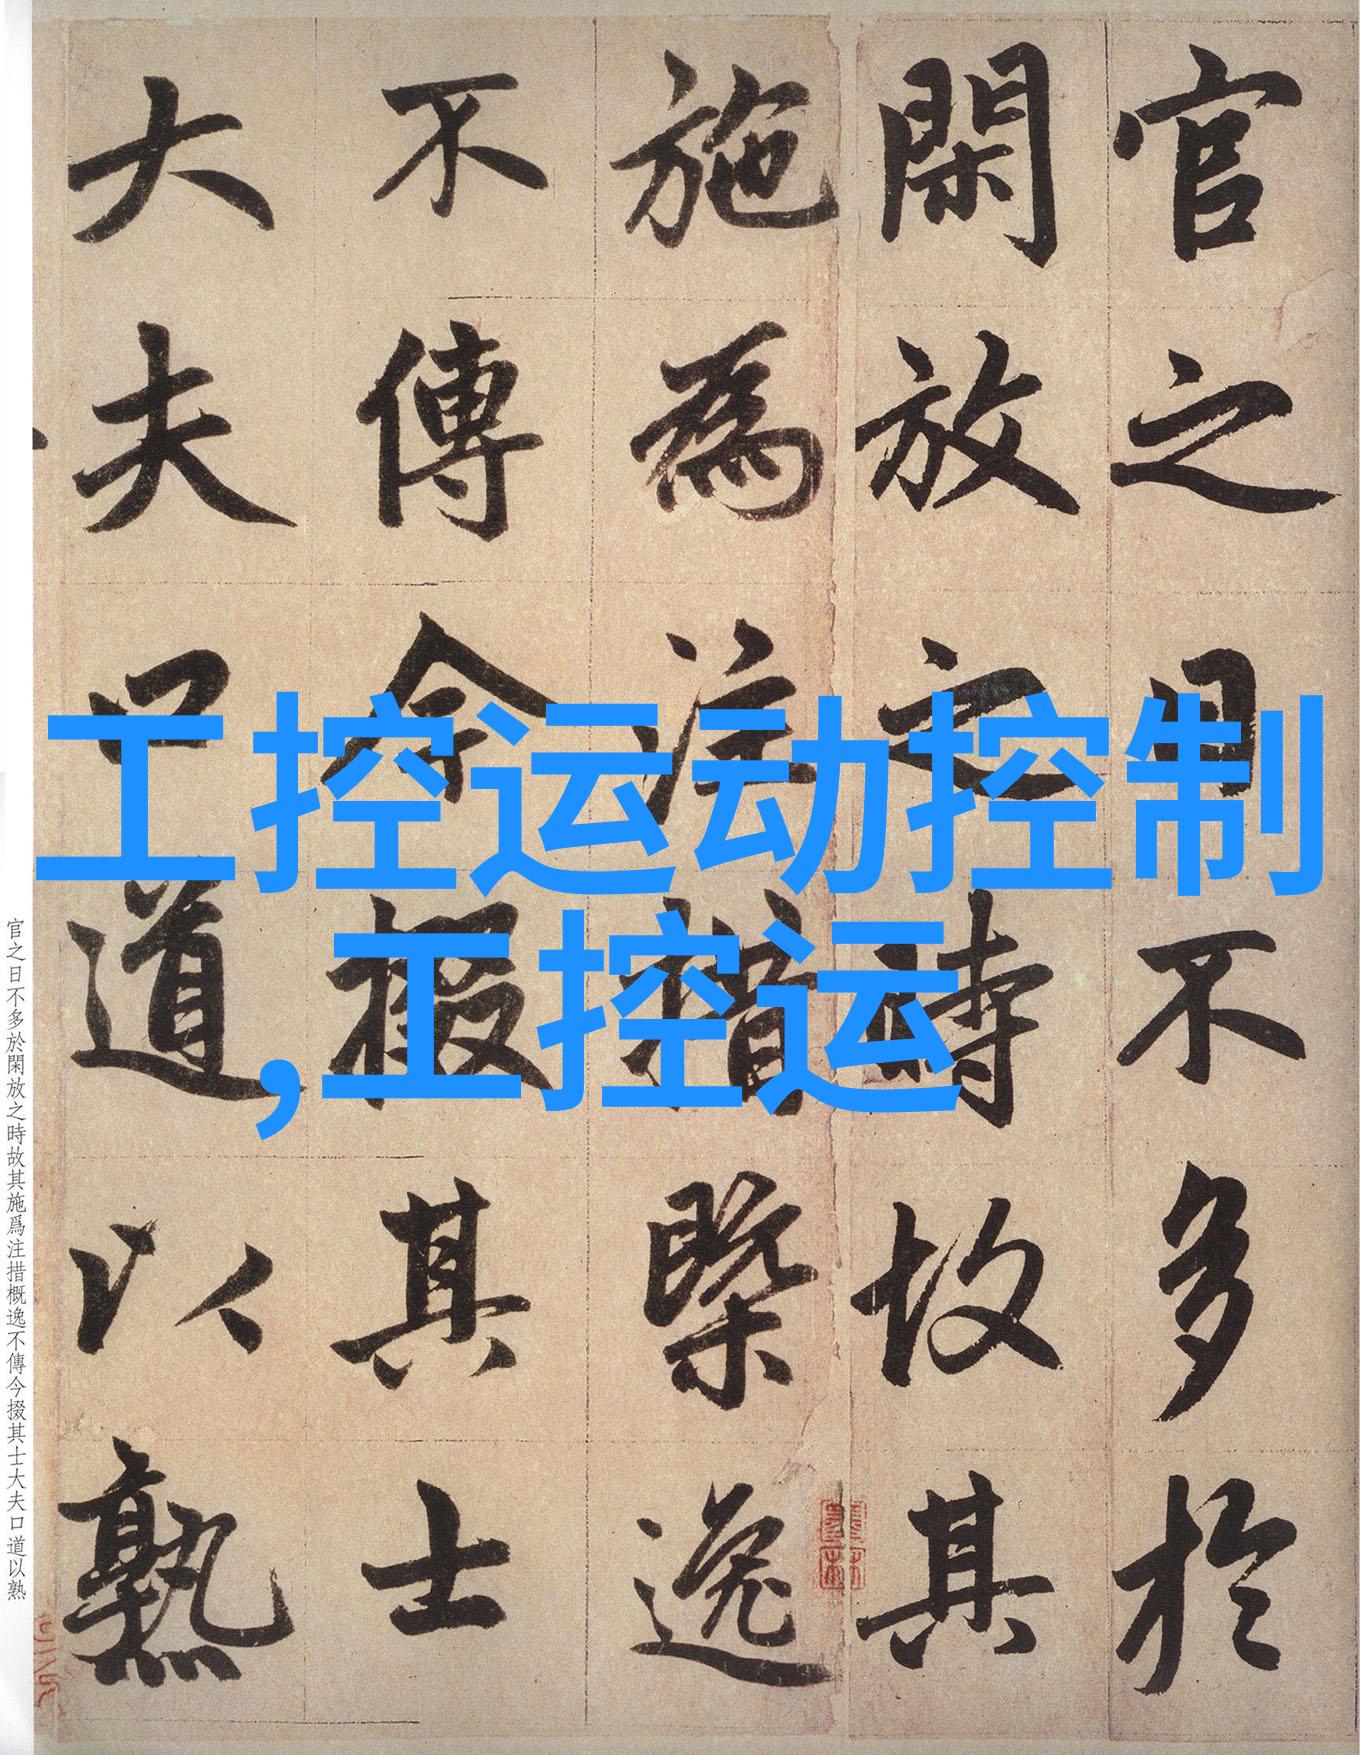 官之日不多於
閑放之時故其
施為注措槩逸
不傳今掇其士
大夫口道以熟
工控运动控制
,工控运
官之日不多於閑放之時故其施爲注措概逸不傳今掇其士大夫口道以熟